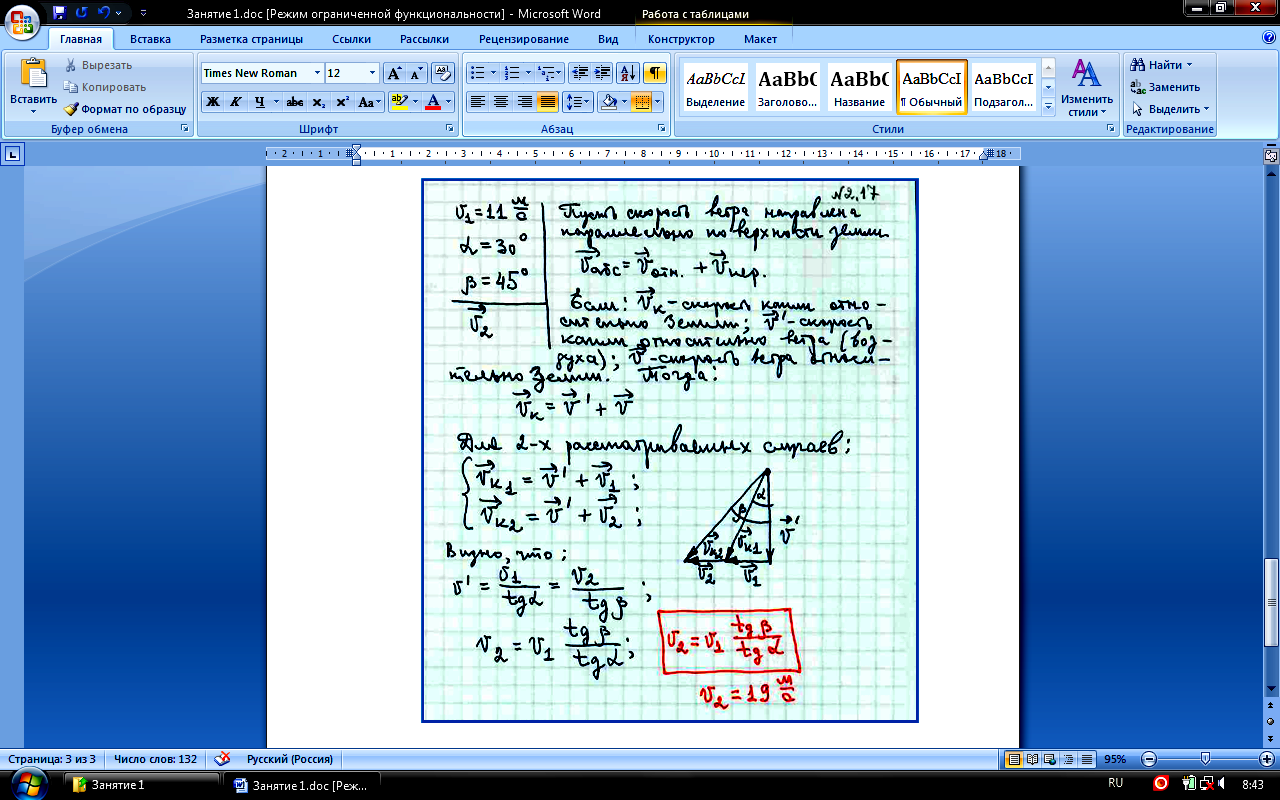 Занятие 1.doc [Режим ограниченной функциональности] - Microsoft Word
Работа с таблицами
Главная Вставка Разметка страницы Ссылки Рассылки Рецензирование Вид Конструктор Макет
Вставить
Вырезать
Копировать
Формат по образцу
Буфер обмена
Times New Roman 12
Ж К Ч abc x₂ x² Aa
Шрифт
Абзац
AaBbCcI AaBbC AaBbC AaBbCcI AaBbCcI
Выделение Заголово... Название ¶ Обычный Подзагол...
Изменить стили
Стили
Найти
Заменить
Выделить
Редактирование
2 1 1 2 3 4 5 6 7 8 9 10 11 12 13 14 15 16 17 18
№2.17
v₁ = 11 м/с
α = 30°
β = 45°
v⃗₂
Пусть скорость ветра направлена
параллельно поверхности земли
v⃗абс = v⃗отн. + v⃗пер.
Если: v⃗к - скорость капли отно-
сительно Земли; v⃗' - скорость
капли относительно ветра (воз-
духа); v⃗ - скорость ветра относи-
тельно Земли. Тогда:
v⃗к = v⃗' + v⃗
Для 2-х рассматриваемых случаев:
v⃗к1 = v⃗' + v⃗₁ ;
v⃗к2 = v⃗' + v⃗₂ ;
α
β
v⃗'
v⃗к2 v⃗к1
v⃗₂ v⃗₁
Видно, что:
v' = v₁/tgα = v₂/tgβ ;
v₂ = v₁ tgβ/tgα ;
v₂ = v₁ tgβ/tgα
v₂ = 19 м/с
Страница: 3 из 3 Число слов: 132 Русский (Россия) 95%
Занятие 1 Занятие 1.doc [Реж... RU 8:43